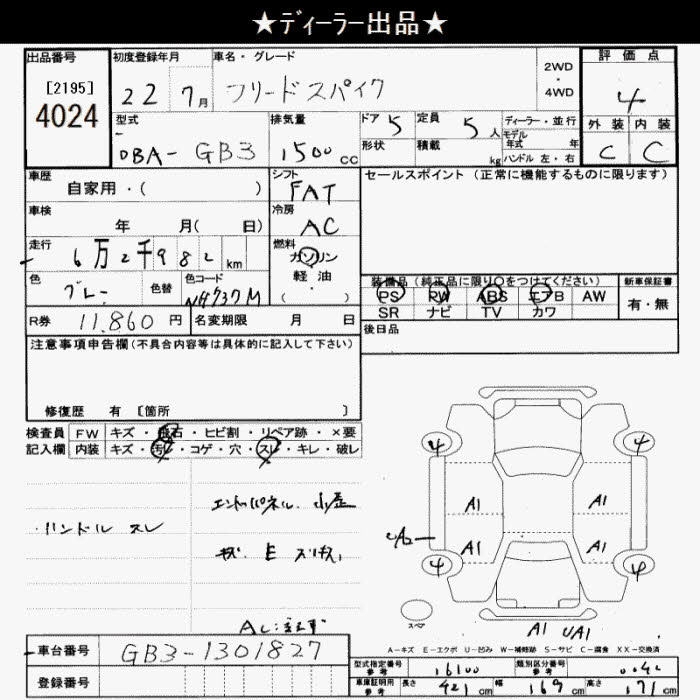 ★ディーラー出品★
出品番号 初度登録年月 車名・グレード 評価点
[2195] 22 7月 フリードスパイク 2WD・4WD 4
4024 型式 排気量 ドア 5 定員 5人 ディーラー・並行 外装 内装
DBA-GB3 1500cc 形状 積載 kg モデル年式 年 ハンドル 左・右 C C
車歴 自家用・( ) シフト FAT セールスポイント(正常に機能するものに限ります)
車検 年 月( 日) 冷房 AC
走行 6万2千982km 燃料 ガソリン
軽油
色 グレー 色替 色コード NH737M ( ) 装備品(純正品に限り○をつけてください) 新車保証書
PS PW ABS エアB AW 有・無
R券 11,860円 名変期限 月 日 SR ナビ TV カワ
後日品
注意事項申告欄(不具合内容等は具体的に記入して下さい)
修復歴 有 [箇所 ]
検査員 FW キズ・飛石・ヒビ割・リペア跡・×要
記入欄 内装 キズ・汚レ・コゲ・穴・スレ・キレ・破レ
4 4
・ハンドル スレ エンドパネル 小歪
A1 A1
UA2 A1 A1
4 4
スペア
A1 UA1
A-キズ E-エクボ U-凹み W-補修跡 S-サビ C-腐食 XX-交換済
車台番号 GB3-1301827 型式指定番号 参考 16100 類別区分番号 参考 0042
登録番号 車庫証明用 参考 長さ 421cm 幅 169cm 高さ 171cm